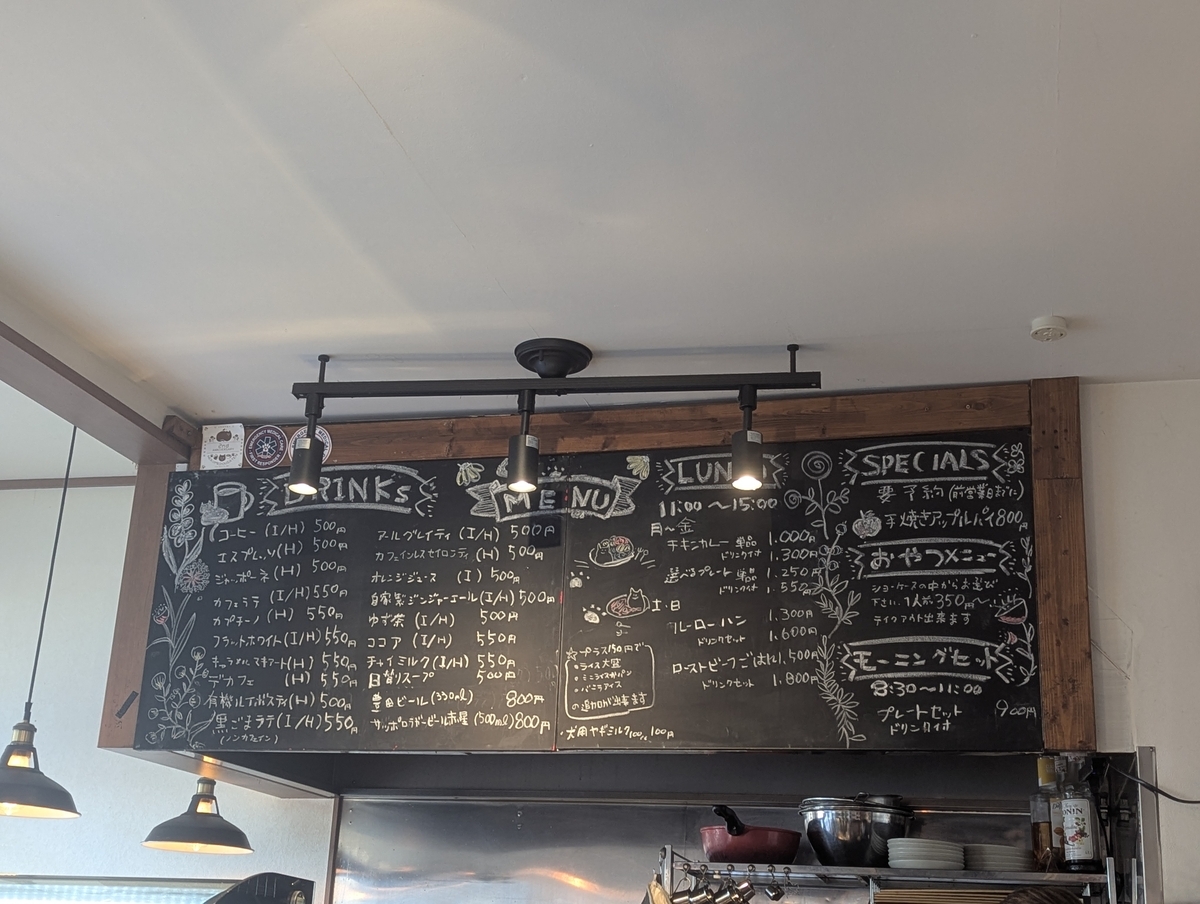 DRINKS
コーヒー (I/H) 500円
エスプレッソ(H) 500円
ジャポーネ(H) 500円
カフェラテ (I/H) 550円
カプチーノ (H) 550円
フラットホワイト(I/H) 550円
キャラメルマキアート(H) 550円
デカフェ (H) 550円
有機ルイボスティ(H) 500円
黒ごまラテ(I/H) 550円
(ノンカフェイン)
MENU
アールグレイティ (I/H) 500円
カフェインレスセイロンティ (H) 500円
オレンジジュース (I) 500円
自家製ジンジャーエール(I/H) 500円
ゆず茶 (I/H) 500円
ココア (I/H) 550円
チャイミルク(I/H) 550円
日替りスープ 500円
豊田ビール(330ml) 800円
サッポロラガービール赤星 (500ml) 800円
LUNCH
11:00 〜 15:00
月〜金
チキンカレー 単品 1.000円
ドリンク付 1.300円
選べるプレート 単品 1.250円
ドリンク付 1.550円
土・日
ルーローハン 1.300円
ドリンクセット 1.600円
ローストビーフごはん 1.500円
ドリンクセット 1.800円
☆プラス150円で
・ライス大盛
・ミニライスかパン
・バニラアイス
の追加が出来ます
・犬用ヤギミルク100cc 100円
SPECIALS
要予約 (前営業日までに)
手焼きアップルパイ 800円
おやつメニュー
ショーケースの中からお選び
下さい。1人前350円〜
テイクアウト出来ます
モーニングセット
8:30〜11:00
プレートセット 900円
ドリンク付